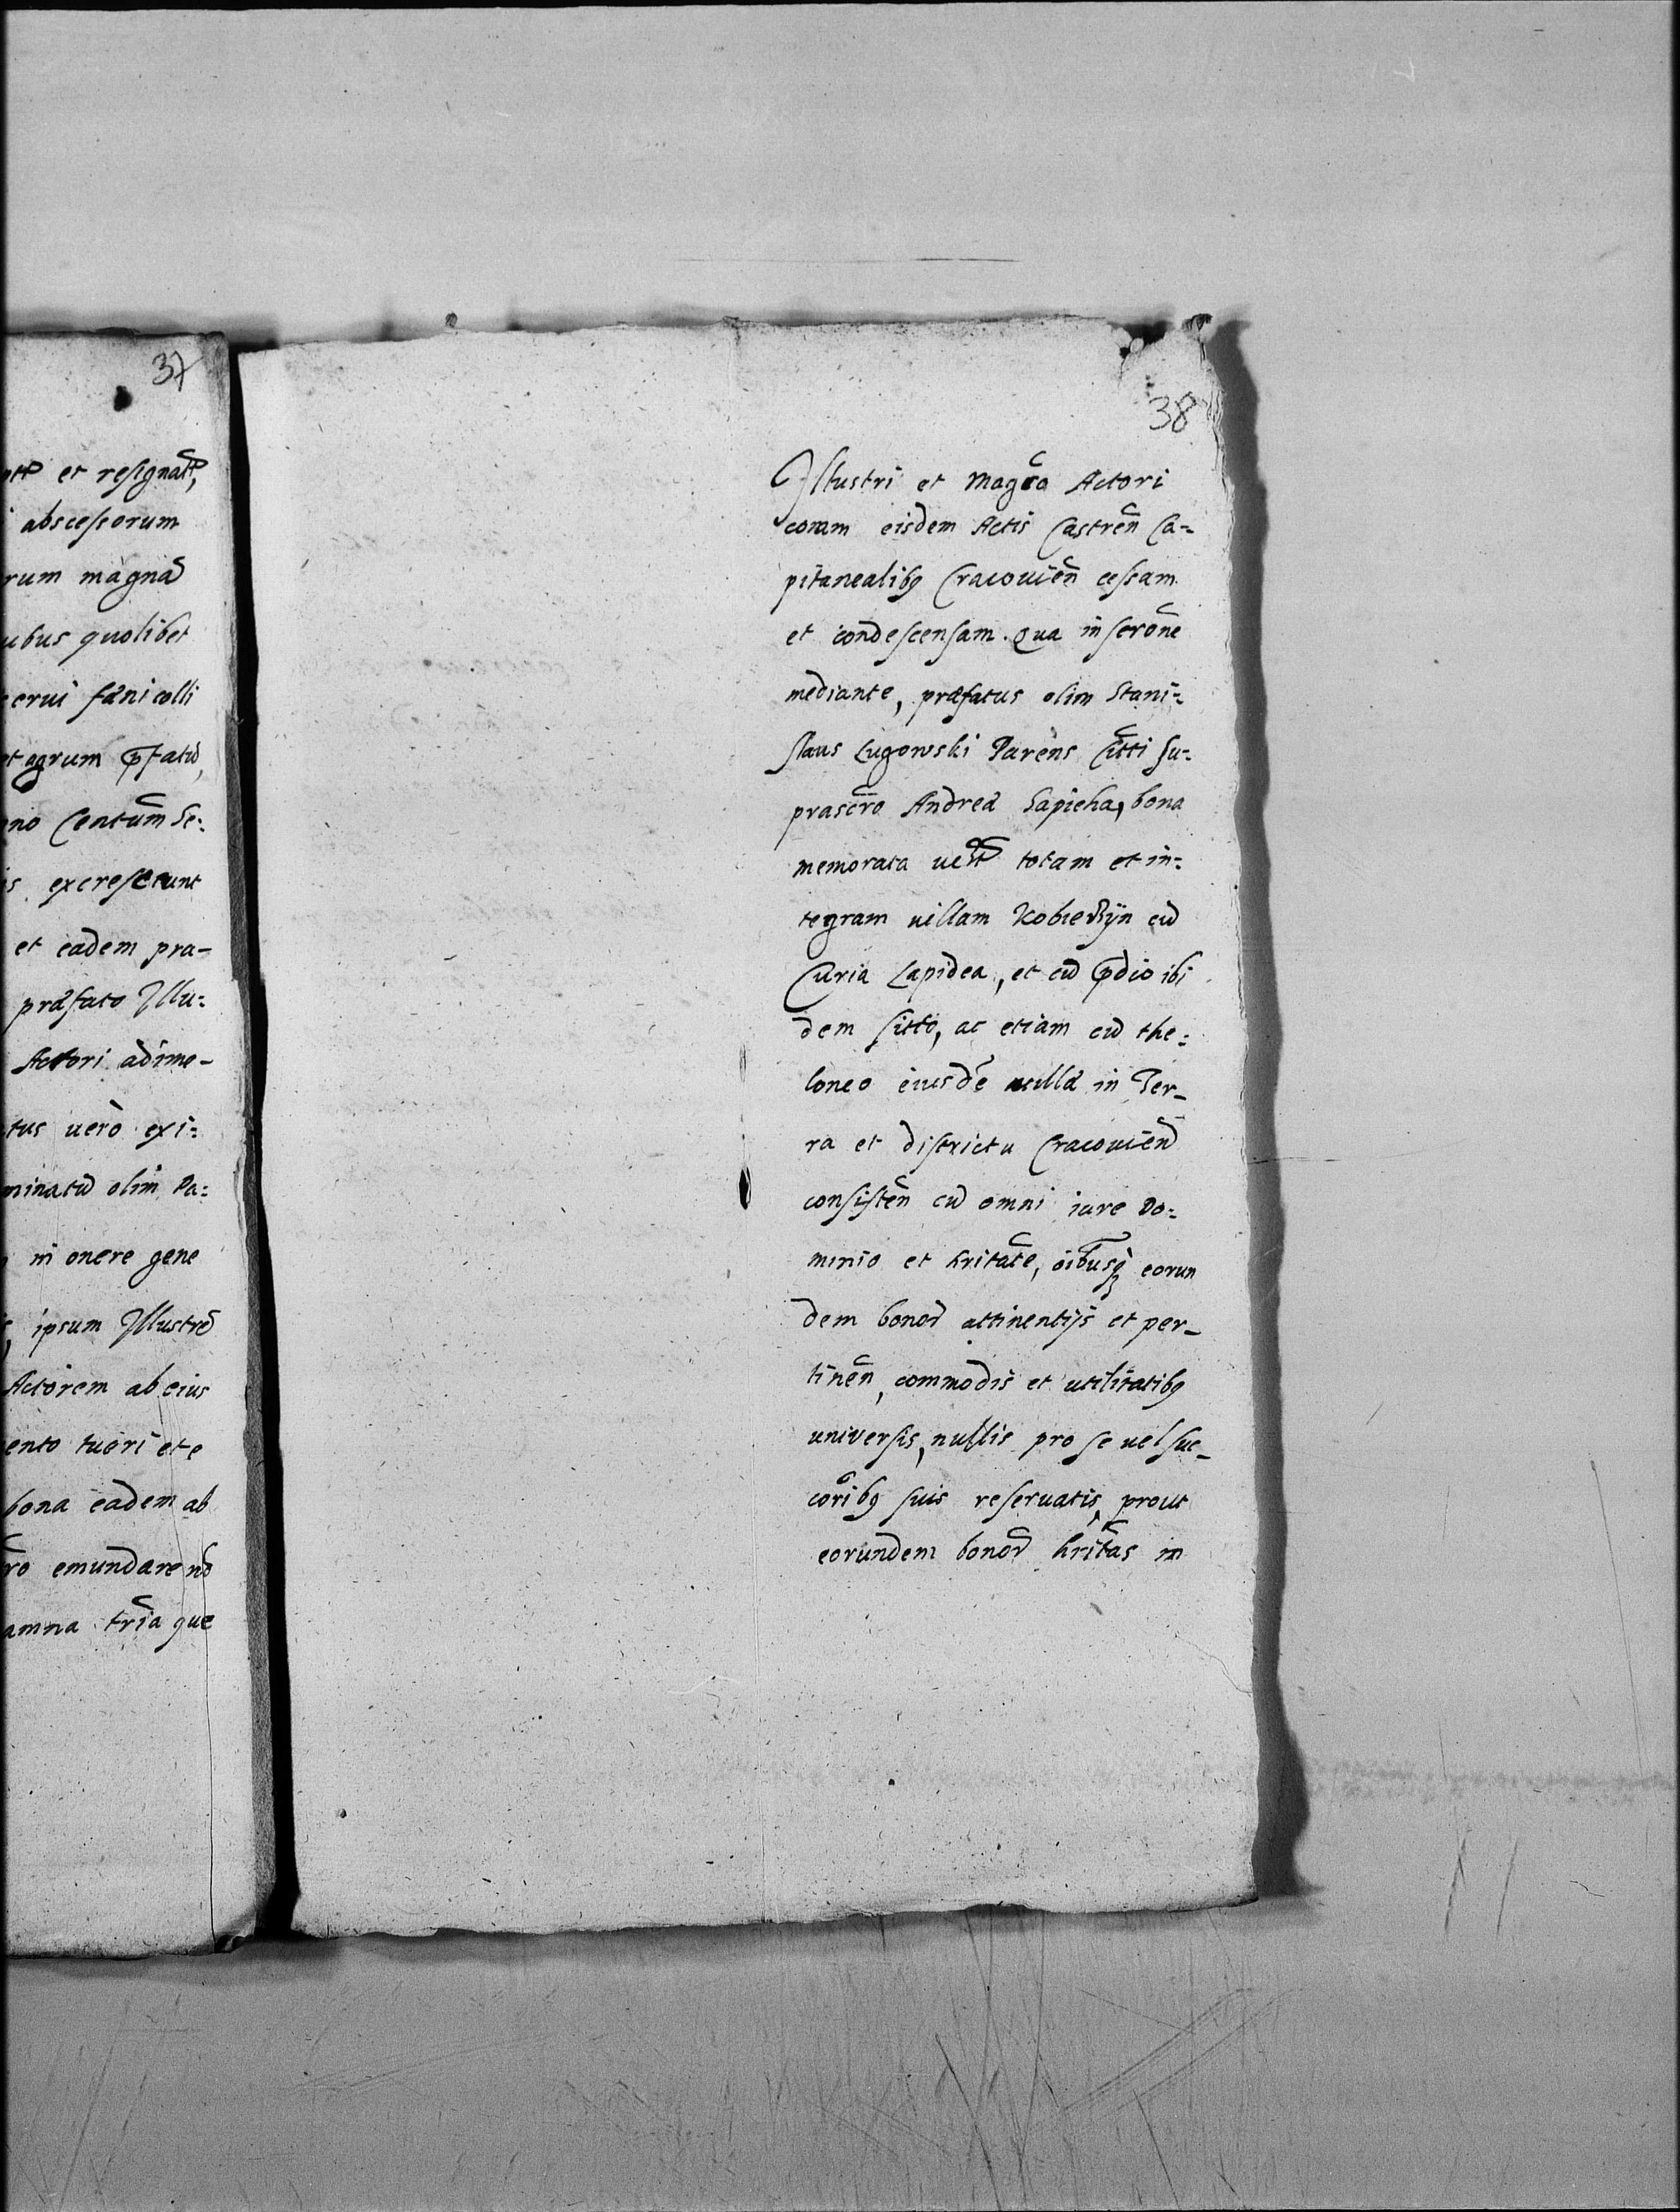 37
et resignat,
abscessorum
rum magna
ubus quolibet
erui fænicolli
et agrum fatu,
no Centum Se:
is excrescunt
et eadem præ-
præfato Illu:
Actori adime-
tus uero exi:
minatu olim Pa:
in onere gene
ipsum Illustre
Actorem ab eius
ento tueri et e
bona eadem ab
ro emundare no
amna tria que
38
Illustri et Magco Actori
coram eisdem Actis Castren Ca-
pitanealibq Cracouien cessam
et condescensam. Qua inserone
mediante, præfatus olim Stani:
slaus Lugowski Parens Citti su:
prascro Andreæ Sapieha, bona
memorata uest totam et in:
tegram uillam Kobierzyn cu
Curia Lapidea, et cu pdio ibi
dem sitto, ac etiam cu the:
loneo eiusde uillæ in Ter-
ra et districtu Cracouien
consisten cu omni iure Do:
minio et hritate, oibusq eorun
dem bonor attinentijs et per-
tinen, commodis et utilitatibq
uniuersis, nullis pro se uel suc-
coribq suis reseruatis, prout
eorundem bonor hritas in